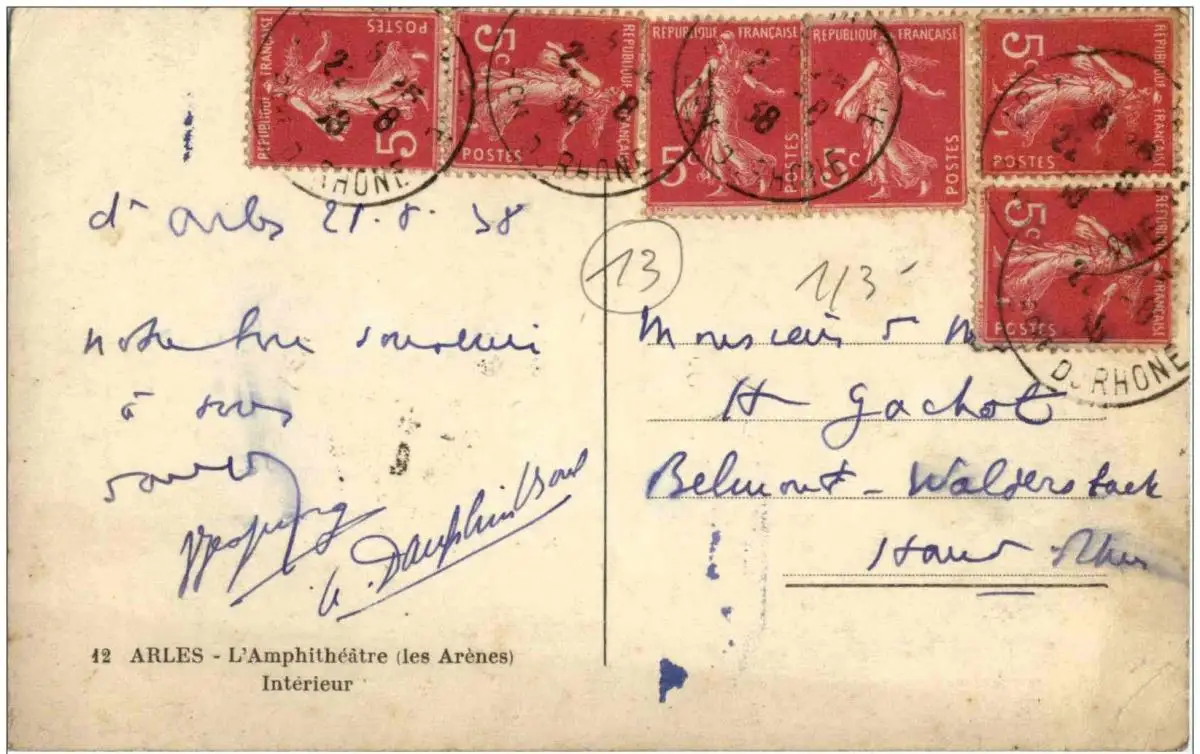 RÉPUBLIQUE FRANÇAISE
POSTES
5c
RÉPUBLIQUE FRANÇAISE
POSTES
5c
RÉPUBLIQUE FRANÇAISE
POSTES
5c
RÉPUBLIQUE FRANÇAISE
POSTES
5c
RÉPUBLIQUE FRANÇAISE
POSTES
5c
RÉPUBLIQUE FRANÇAISE
POSTES
5c
DU RHONE
DU RHONE
DU RHONE
DU RHONE
d'Arles 21.8.38
notre bon souvenir
à tous
13
1/3
Monsieur & M
H Gachot
Belmont - Walderstack
Haut Rhin
12 ARLES - L'Amphithéâtre (les Arènes)
Intérieur